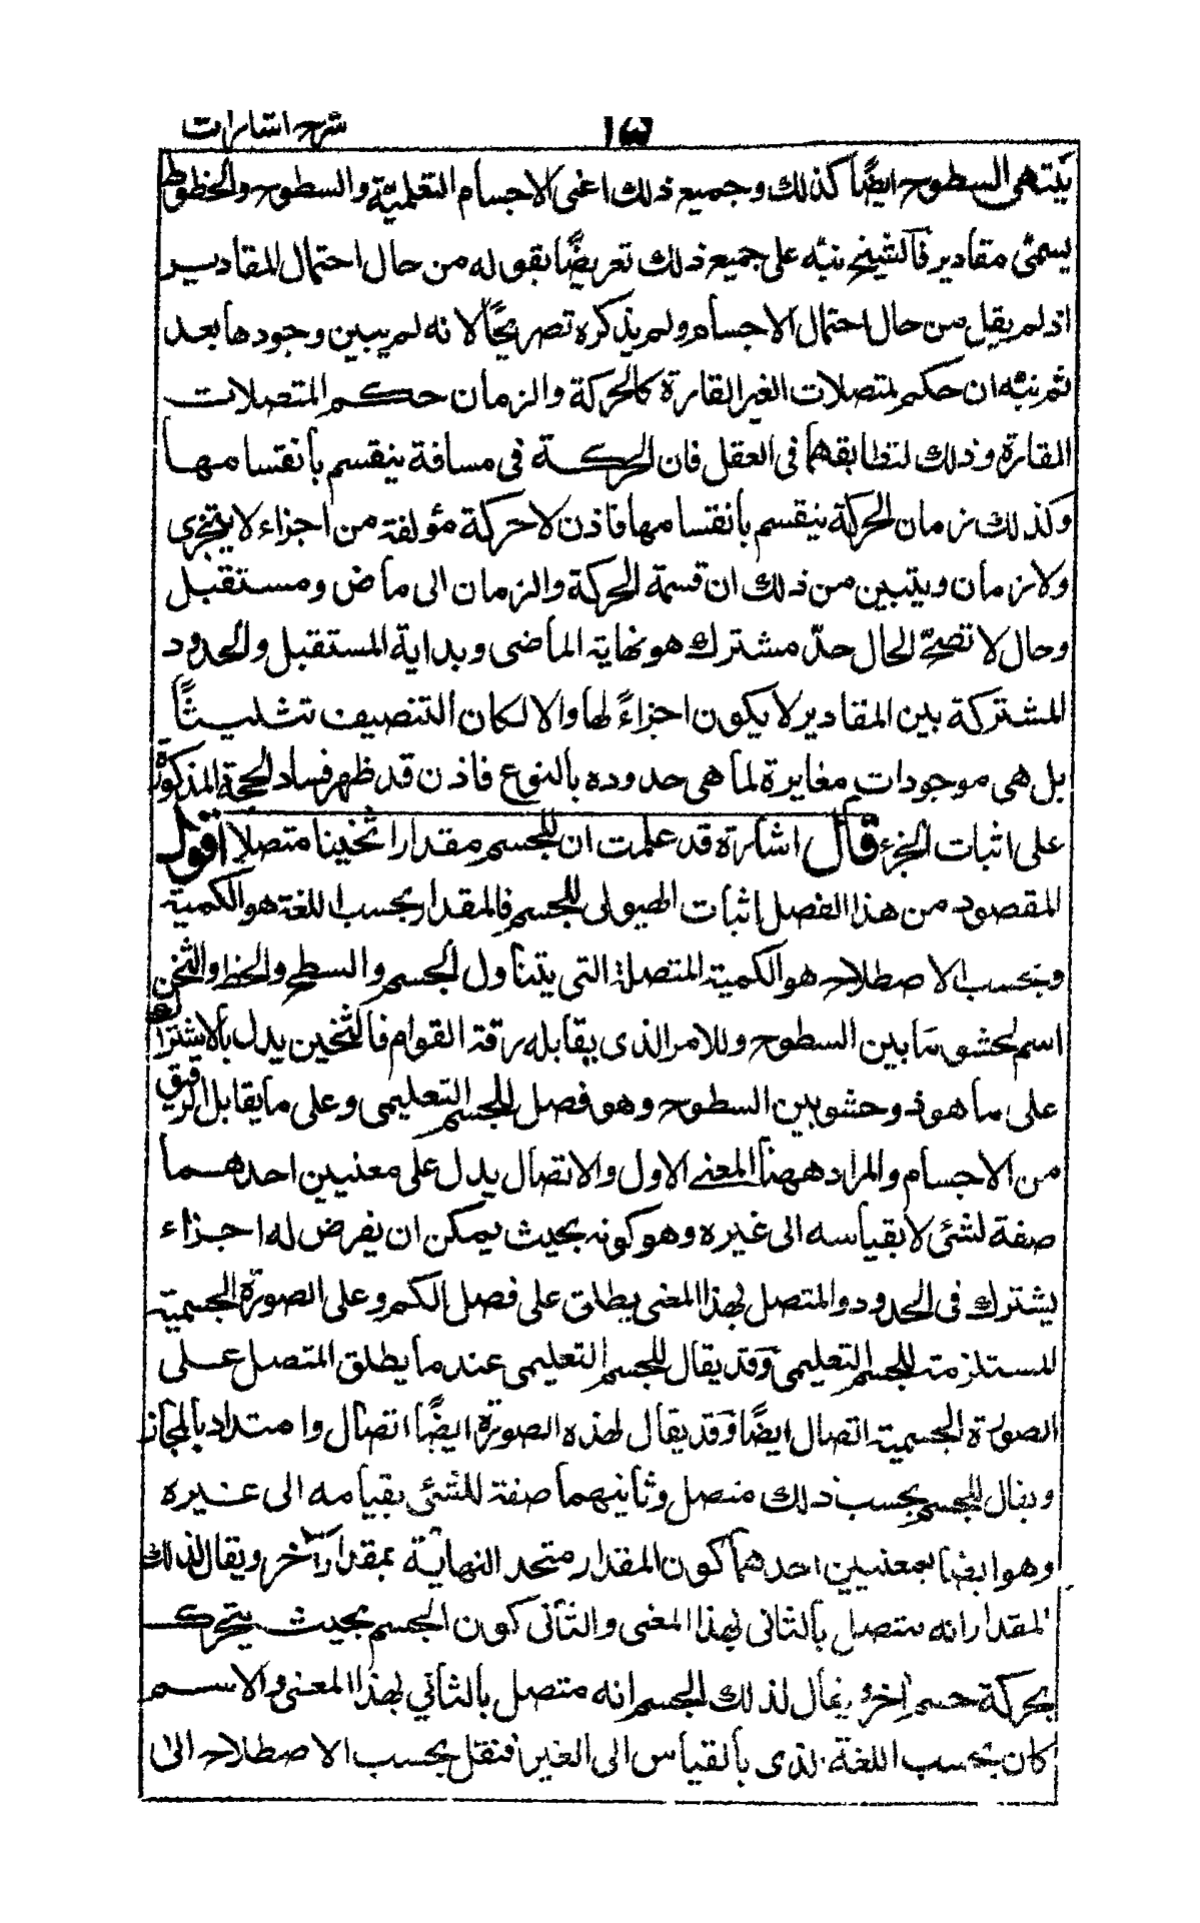 شرح اشارات
١٥
ينتهى السطوح ايضًا كذلك وجميع ذلك اعنى الاجسام التعليميّة والسطوح والخطوط
يسمّى مقادير فالشيخ نبّه على جميع ذلك تعريضًا بقوله من حال احتمال المقادير
اذ لم يقل من حال احتمال الاجسام ولم يذكره تصريحًا لانه لم يبين وجودها بعد
ثم نبّه ان حكم المتصلات الغير القارة كالحركة والزمان حكم المتصلات
القارة وذلك لتطابقهما فى العقل فان الحركة فى مسافة ينقسم بانقسامها
وكذلك زمان الحركة ينقسم بانقسامها فاذن لا حركة مؤلفة من اجزاء لا يتجزى
ولا زمان ويتبين من ذلك ان قسمة الحركة والزمان الى ماض ومستقبل
وحال لا تصحّ الحال حدّ مشترك هو نهاية الماضى وبداية المستقبل والحدود
المشتركة بين المقادير لا يكون اجزاءً لها والا لكان التنصيف تثليثًا
بل هى موجودات مغايرة لما هى حدوده بالنوع فاذن قد ظهر فساد الحجة المذكورة
على اثبات الجزء قال اشارة قد علمت ان للجسم مقدارا ثخينا متصلا اقول
المقصود من هذا الفصل اثبات الهيولى للجسم فالمقدار بحسب اللغة هو الكمية
وبحسب الاصطلاح هو الكمية المتصلة التى يتناول الجسم والسطح والخط والثخن
اسم لحشو ما بين السطوح وللامر الذى يقابله رقة القوام فالثخين يدل بالاشتراك
على ما هو ذو حشو بين السطوح وهو فصل للجسم التعليمى وعلى ما يقابل الرقيق
من الاجسام والمراد ههنا المعنى الاول والاتصال يدل على معنيين احدهما
صفة لشئ لا بقياسه الى غيره وهو كونه بحيث يمكن ان يفرض له اجزاء
يشترك فى الحدود والمتصل بهذا المعنى يطلق على فصل الكم وعلى الصورة الجسمية
المستلزمة للجسم التعليمى وقد يقال للجسم التعليمى عندما يطلق المتصل على
الصورة الجسمية اتصال ايضًا وقد يقال لهذه الصورة ايضًا اتصال وامتداد بالمجاز
ويقال للجسم بحسب ذلك متصل وثانيهما صفة للشئ بقياسه الى غيره
وهو ايضا بمعنيين احدهما كون المقدار متحد النهاية بمقدار آخر ويقال لذلك
المقدار انه متصل بالثانى بهذا المعنى والثانى كون الجسم بحيث يتحرك
بحركة جسم اخر ويقال لذلك الجسم انه متصل بالثانى بهذا المعنى والاسم
كان بحسب اللغة الذى بالقياس الى الغير فنقل بحسب الاصطلاح الى